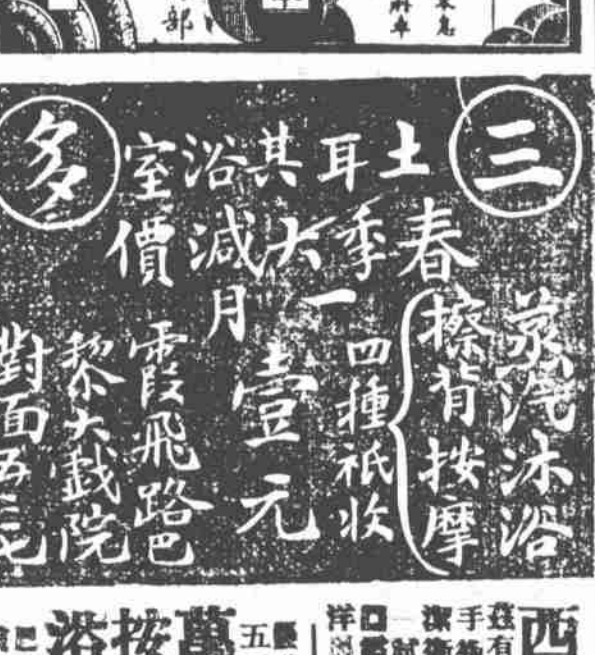 三
多
土耳其浴室
春季大減價
一月
蒸汽沐浴
擦背按摩
四種祇收
壹元
霞飛路巴
黎大戲院
對面五三七
部
五
西
茲有
手
按
浴
洋